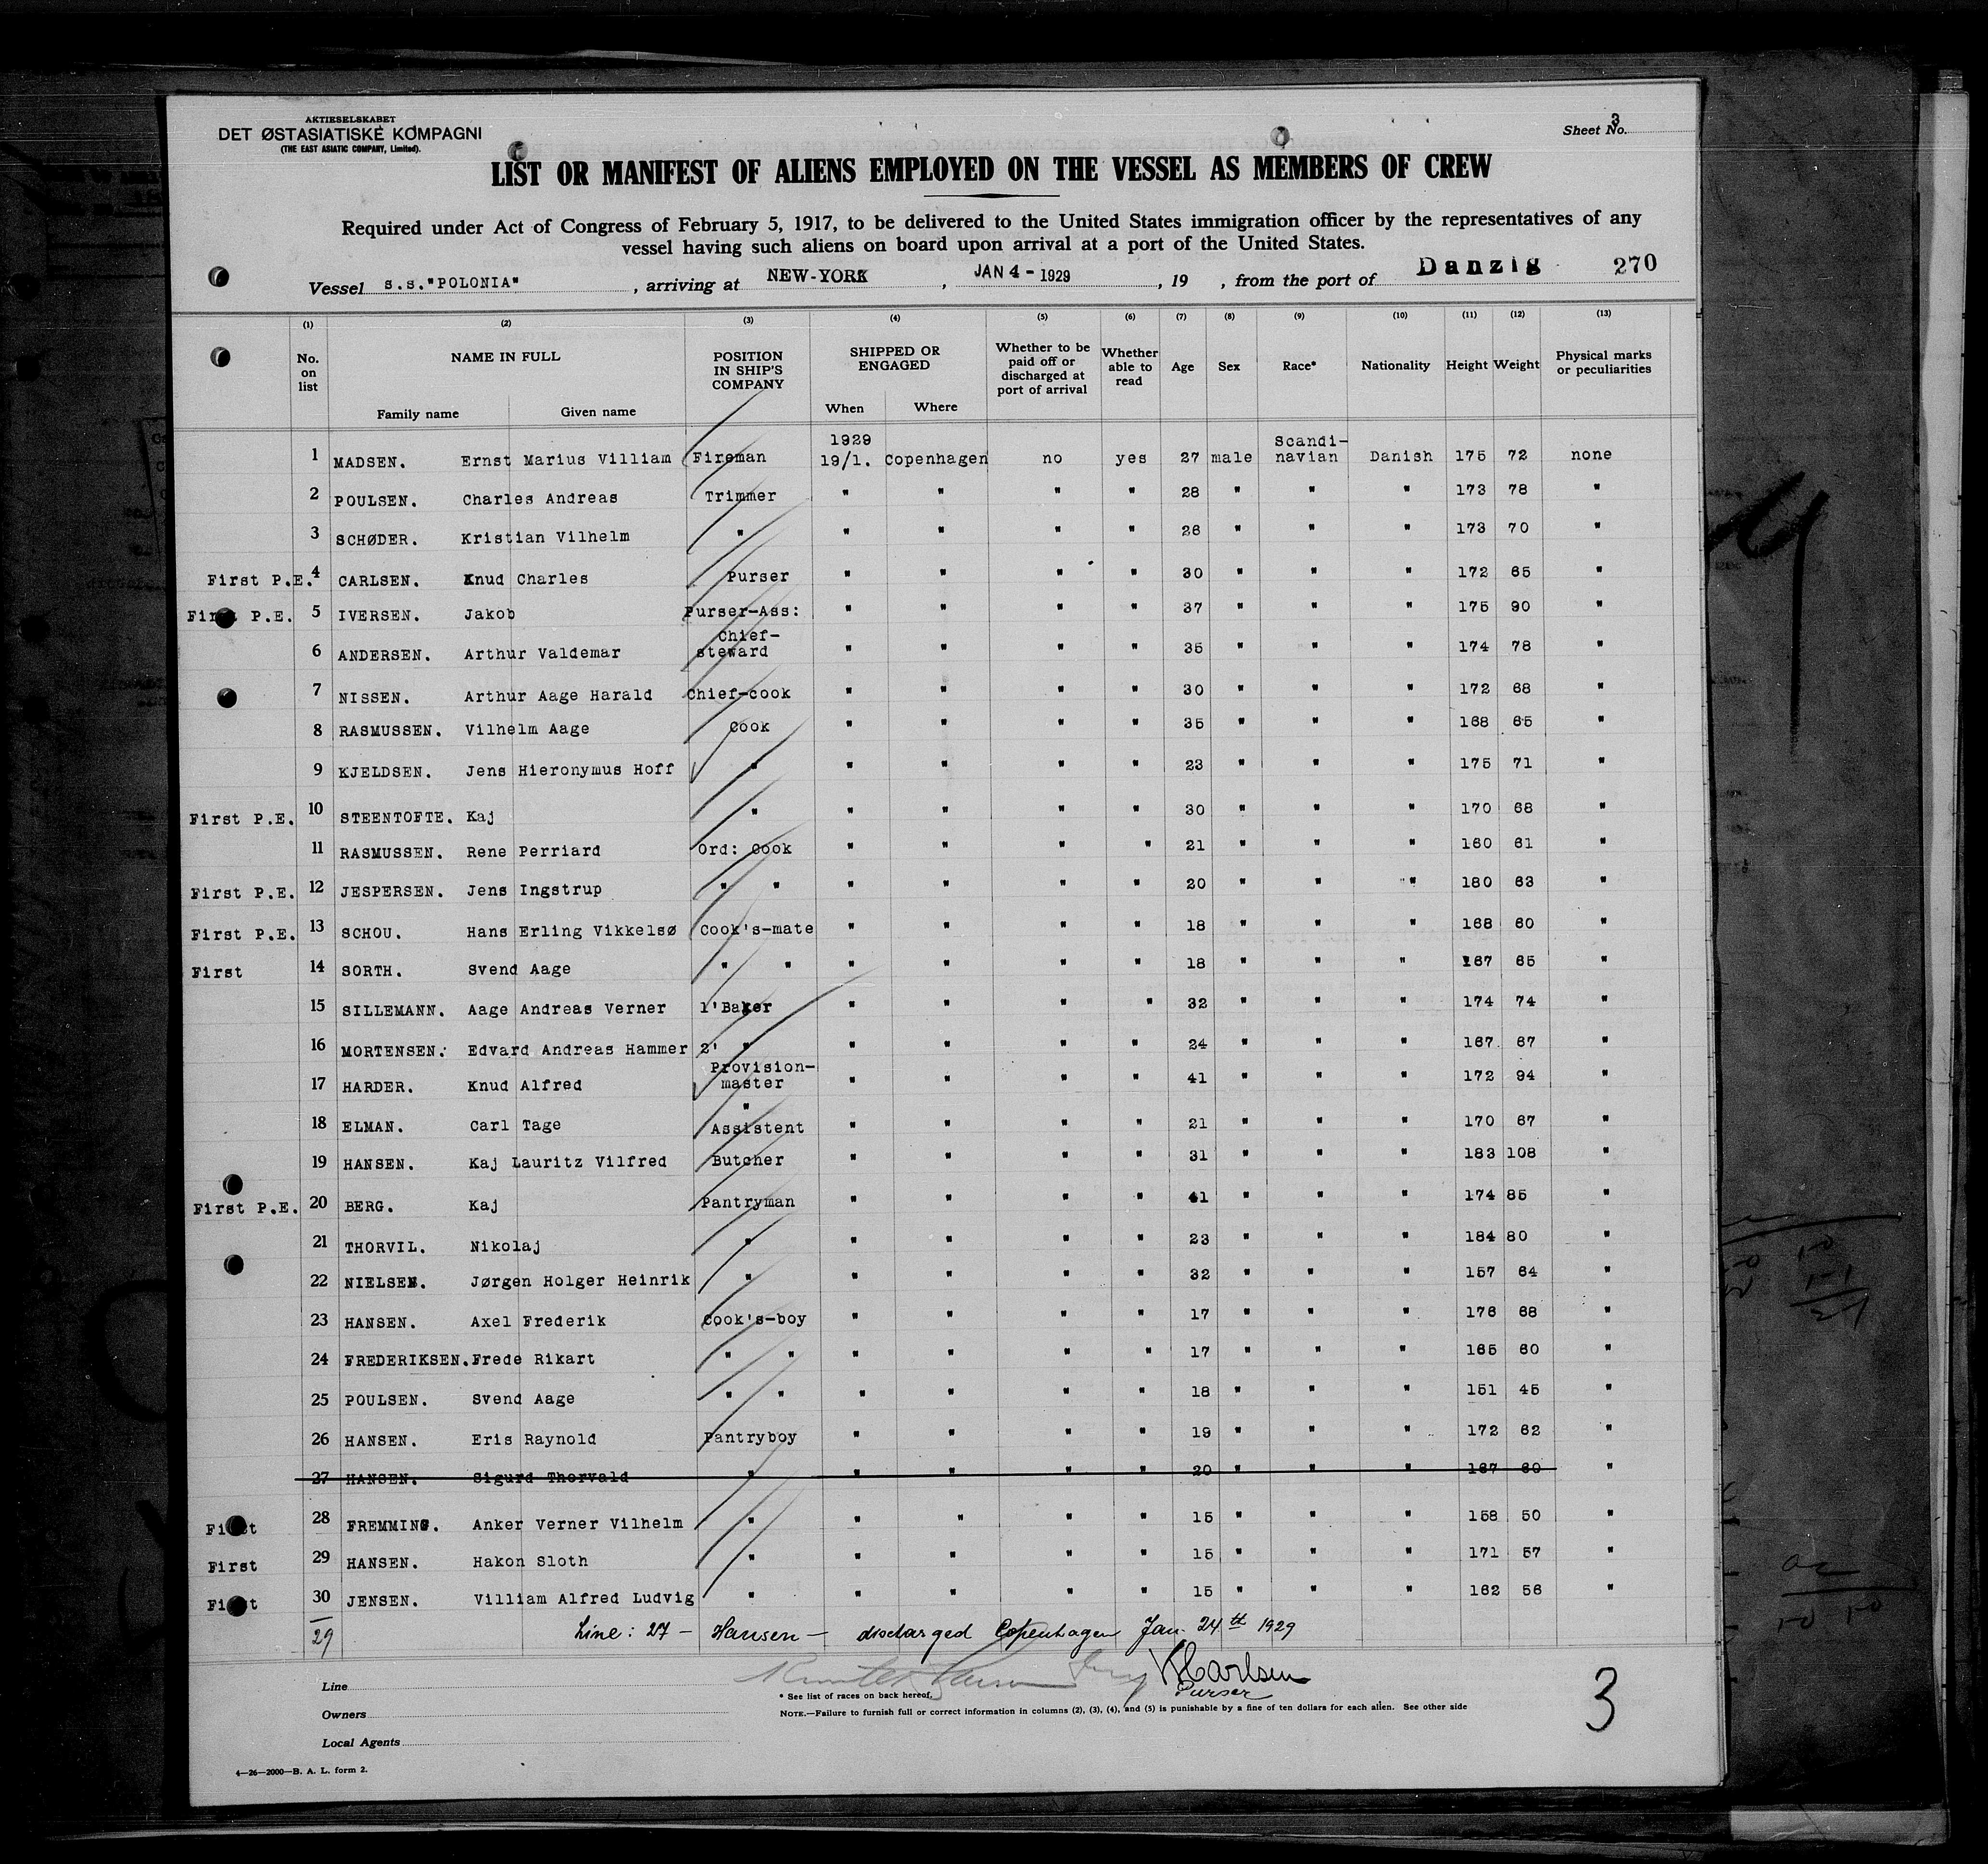 AKTIESELSKABET
DET ØSTASIATISKE KOMPAGNI
(THE EAST ASIATIC COMPANY, Limited).
Sheet No. 3
LIST OR MANIFEST OF ALIENS EMPLOYED ON THE VESSEL AS MEMBERS OF CREW
Required under Act of Congress of February 5, 1917, to be delivered to the United States immigration officer by the representatives of any
vessel having such aliens on board upon arrival at a port of the United States.
Vessel S.S."POLONIA" , arriving at NEW-YORK , JAN 4 - 1929 , 19 , from the port of Danzig 270
(1) (2) (3) (4) (5) (6) (7) (8) (9) (10) (11) (12) (13)
No. on list NAME IN FULL Family name Given name POSITION IN SHIP'S COMPANY SHIPPED OR ENGAGED When Where Whether to be paid off or discharged at port of arrival Whether able to read Age Sex Race* Nationality Height Weight Physical marks or peculiarities
1 MADSEN. Ernst Marius Villiam Fireman 1929 19/1. Copenhagen no yes 27 male Scandi-navian Danish 175 72 none
2 POULSEN. Charles Andreas Trimmer " " " " 28 " " " 173 78 "
3 SCHØDER. Kristian Vilhelm " " " " " 26 " " " 173 70 "
First P.E. 4 CARLSEN. Knud Charles Purser " " " " 30 " " " 172 65 "
First P.E. 5 IVERSEN. Jakob Purser-Ass: " " " " 37 " " " 175 90 "
6 ANDERSEN. Arthur Valdemar Chief-steward " " " " 35 " " " 174 78 "
7 NISSEN. Arthur Aage Harald Chief-cook " " " " 30 " " " 172 68 "
8 RASMUSSEN. Vilhelm Aage Cook " " " " 35 " " " 168 65 "
9 KJELDSEN. Jens Hieronymus Hoff " " " " " 23 " " " 175 71 "
First P.E. 10 STEENTOFTE. Kaj " " " " " 30 " " " 170 68 "
11 RASMUSSEN. Rene Perriard Ord: Cook " " " " 21 " " " 160 61 "
First P.E. 12 JESPERSEN. Jens Ingstrup " " " " " " 20 " " " 180 63 "
First P.E. 13 SCHOU. Hans Erling Vikkelsø Cook's-mate " " " " 18 " " " 168 60 "
First 14 SORTH. Svend Aage " " " " " " 18 " " " 167 65 "
15 SILLEMANN. Aage Andreas Verner 1'Baker " " " " 32 " " " 174 74 "
16 MORTENSEN. Edvard Andreas Hammer 2' " " " " " 24 " " " 167 67 "
17 HARDER. Knud Alfred Provision-master " " " " 41 " " " 172 94 "
18 ELMAN. Carl Tage " Assistent " " " " 21 " " " 170 67 "
19 HANSEN. Kaj Lauritz Vilfred Butcher " " " " 31 " " " 183 108 "
First P.E. 20 BERG. Kaj Pantryman " " " " 41 " " " 174 85 "
21 THORVIL. Nikolaj " " " " " 23 " " " 184 80 "
22 NIELSEN. Jørgen Holger Heinrik " " " " " 32 " " " 157 64 "
23 HANSEN. Axel Frederik Cook's-boy " " " " 17 " " " 176 68 "
24 FREDERIKSEN. Frede Rikart " " " " " " 17 " " " 165 60 "
25 POULSEN. Svend Aage " " " " " " 18 " " " 151 45 "
26 HANSEN. Eris Raynold Pantryboy " " " " 19 " " " 172 62 "
27 HANSEN. Sigurd Thorvald " " " " " 20 " " " 167 60 "
First 28 FREMMING. Anker Verner Vilhelm " " " " " 15 " " " 158 50 "
First 29 HANSEN. Hakon Sloth " " " " " 15 " " " 171 57 "
First 30 JENSEN. Villiam Alfred Ludvig " " " " " 15 " " " 162 56 "
29 Line: 27 - Hansen - discharged Copenhagen Jan. 24th 1929
Line
KCarlsen
Purser
* See list of races on back hereof.
Owners
NOTE.—Failure to furnish full or correct information in columns (2), (3), (4), and (5) is punishable by a fine of ten dollars for each alien. See other side
3
Local Agents
4—26—2000—B. A. L. form 2.